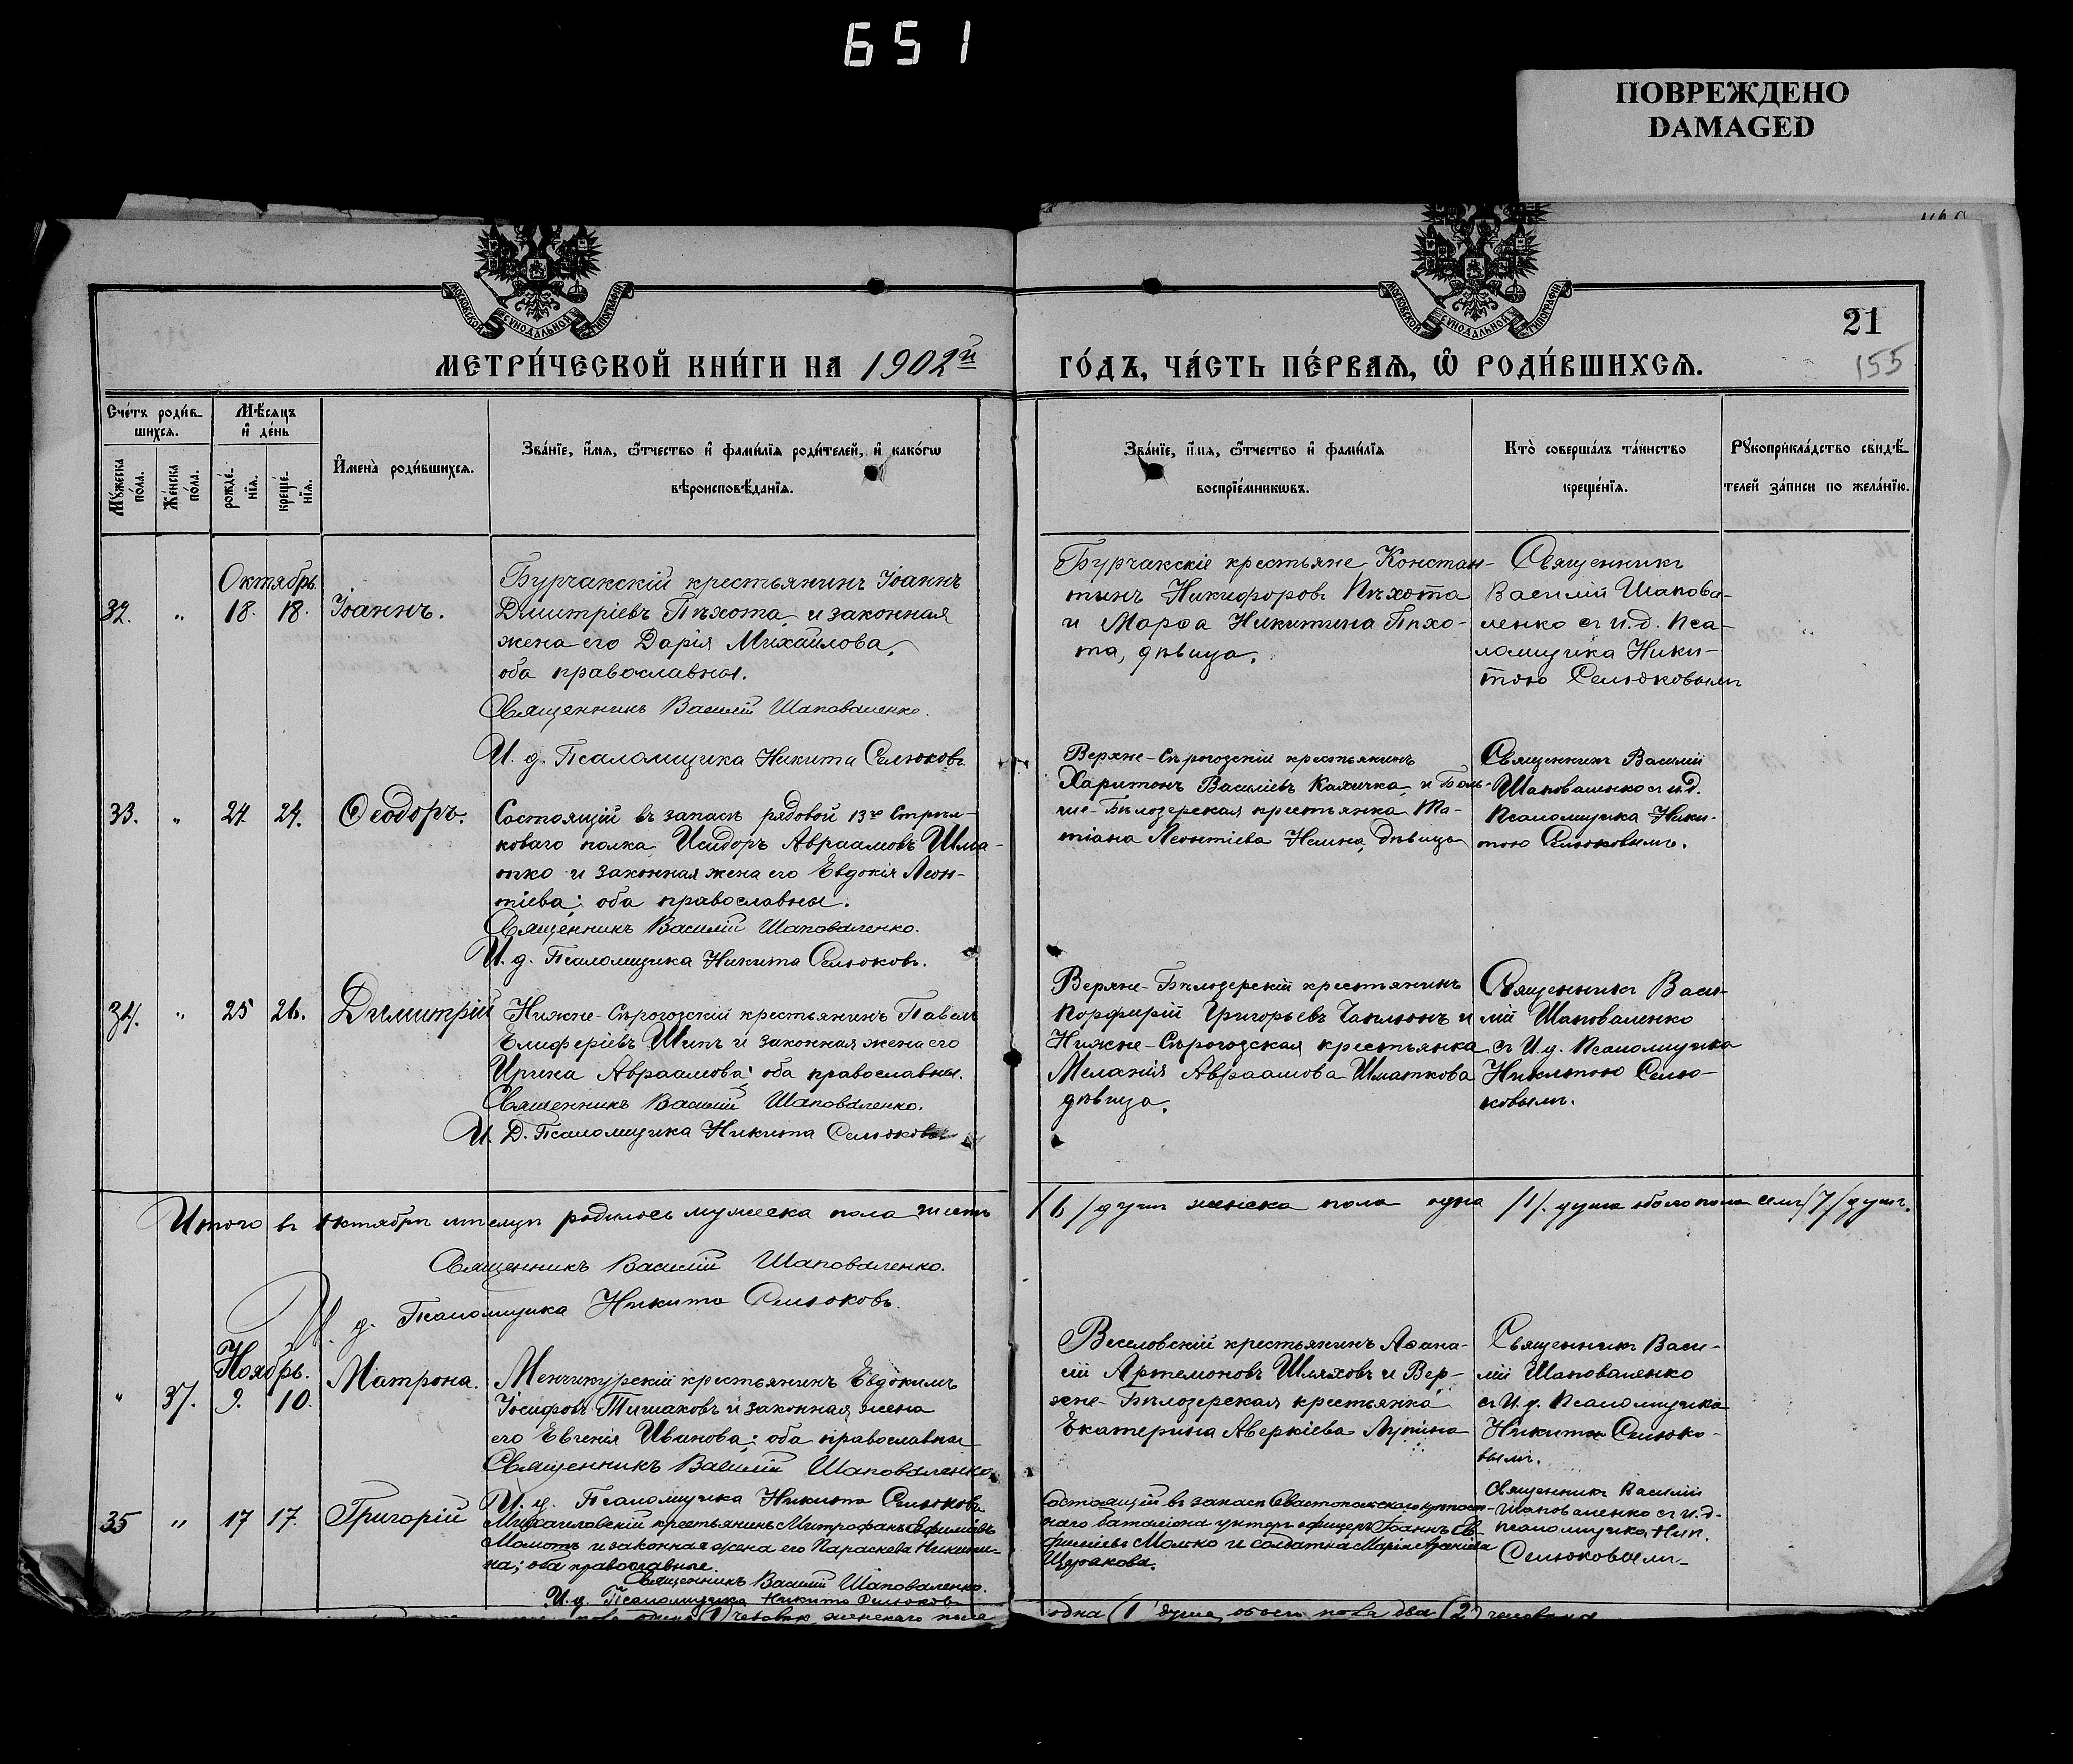 651
ПОВРЕЖДЕНО
DAMAGED
МОСКОВСКОЙ СУНОДАЛЬНОЙ ТИПОГРАФІИ
МОСКОВСКОЙ СУНОДАЛЬНОЙ ТИПОГРАФІИ
21
155
МЕТРИ́ЧЕСКОЙ КНИ́ГИ НА 1902й ГО́ДЪ, ЧА́СТЬ ПЕ́РВАѦ, Ѡ РОДИ́ВШИХСѦ.
Сче́тъ роди́в-
шихсѧ.
Мѣ́сѧцъ
и҆ де́нь
Мꙋ́жеска
по́ла.
Же́нска
по́ла.
рожде́-
нїѧ.
креще́-
нїѧ.
И҆мена̀ роди́вшихсѧ.
Зва́нїе, и҆́мѧ, ѻ҆́тчество и҆ фами́лїѧ роди́телей, и҆ како́гѡ
вѣроисповѣ́данїѧ.
Зва́нїе, и҆́мѧ, ѻ҆́тчество и҆ фами́лїѧ
воспрїе́мникѡвъ.
Кто̀ соверша́лъ та́инство
креще́нїѧ.
Рꙋкоприкла́дство свидѣ́-
телей за́писи по жела́нїю.
Октябрь
32. " 18. 18. Іоаннъ.
Бурчакскій крестьянинъ Іоаннъ
Дмитріевъ Пѣхота, и законная
жена его Дарія Михаилова,
оба православны.
Священникъ Василій Шаповаленко.
И. д. Псаломщика Никита Селюковъ.
Бурчакскіе крестьяне, Констан-
тинъ Никифоровъ Пѣхота
и Марѳа Никитина Пѣхо-
та, дѣвица.
Священникъ
Василій Шапова-
ленко съ и.д. Пса-
ломщика Ники-
тою Селюковымъ
"
33. " 24. 24. Ѳеодоръ.
Состоящій въ запасѣ рядовой 13го Стрѣл-
коваго полка, Исидоръ Авраамовъ Шма-
тко и законная жена его Евдокія Леон-
тіева; оба православны.
Священникъ Василій Шаповаленко.
И. д. Псаломщика Никита Селюковъ.
Верхне-Сѣрогозскій крестьянинъ
Харитонъ Василіевъ Кахичка, и Боль-
ше-Бѣлозерская крестьянка Та-
тіана Леонтіева дѣвица
Священникъ Василій
Шаповаленко съ и.д.
Псаломщика Ники-
тою Селюковымъ.
34. " 25 26. Димитрій
Нижне-Сѣрогозскій крестьянинъ Павелъ
Елиферіевъ Шипъ и законная жена его
Ирина Авраамова; оба православны.
Священникъ Василій Шаповаленко.
И. Д. Псаломщика Никита Селюковъ.
Верхне-Бѣлозерскій крестьянинъ
Порфирій Григорьевъ Чаплюнъ и
Нижне-Сѣрогозская крестьянка
Меланія Авраамова Шматкова
дѣвица.
Священникъ Васи-
лій Шаповаленко
съ И.д. Псаломщика
Никитою Селю-
ковымъ.
Итого въ октябрѣ мѣсяцѣ родилось мужеска пола шесть /6/ душъ женска пола одна /1/. душа обоего пола семь /7/ душъ.
Священникъ Василій Шаповаленко.
И. д. Псаломщика Никита Селюковъ.
Ноябрь.
" 37. 9. 10. Матрона.
Менчикурскій крестьянинъ Евдокимъ
Іосифовъ Тишаковъ и законная жена
его Евгенія Иванова; оба православны
Священникъ Василій Шаповаленко.
И. д. Псаломщика Никита Селюковъ
Веселовскій крестьянинъ Аѳана-
сій Артемоновъ Шляховъ и Вер-
хне-Бѣлозерская крестьянка
Екатерина Аверкіева Лупина
Священникъ Васи-
лій Шаповаленко
съ И.д. Псаломщика
Никитою Селюко-
вымъ.
35 " 17 17. Григорій
Михайловскій крестьянинъ Митрофанъ Ефиміевъ
Молотъ и законная жена его Параскева Никити-
на; оба православные.
Священникъ Василій Шаповаленко.
И. д. Псаломщика Никита Селюковъ
Состоящій въ запасѣ Севастопольскаго крѣпост-
наго баталіона унтеръ-офицеръ Іоаннъ Ев-
фиміевъ Молоко и солдатка Марія Арсеніева
Щербакова.
Священникъ Василій
Шаповаленко съ и.д.
псаломщика Ник.
Селюковымъ
(1) человѣкъ женскаго пола одна (1) душа, обоего пола два (2) человѣка